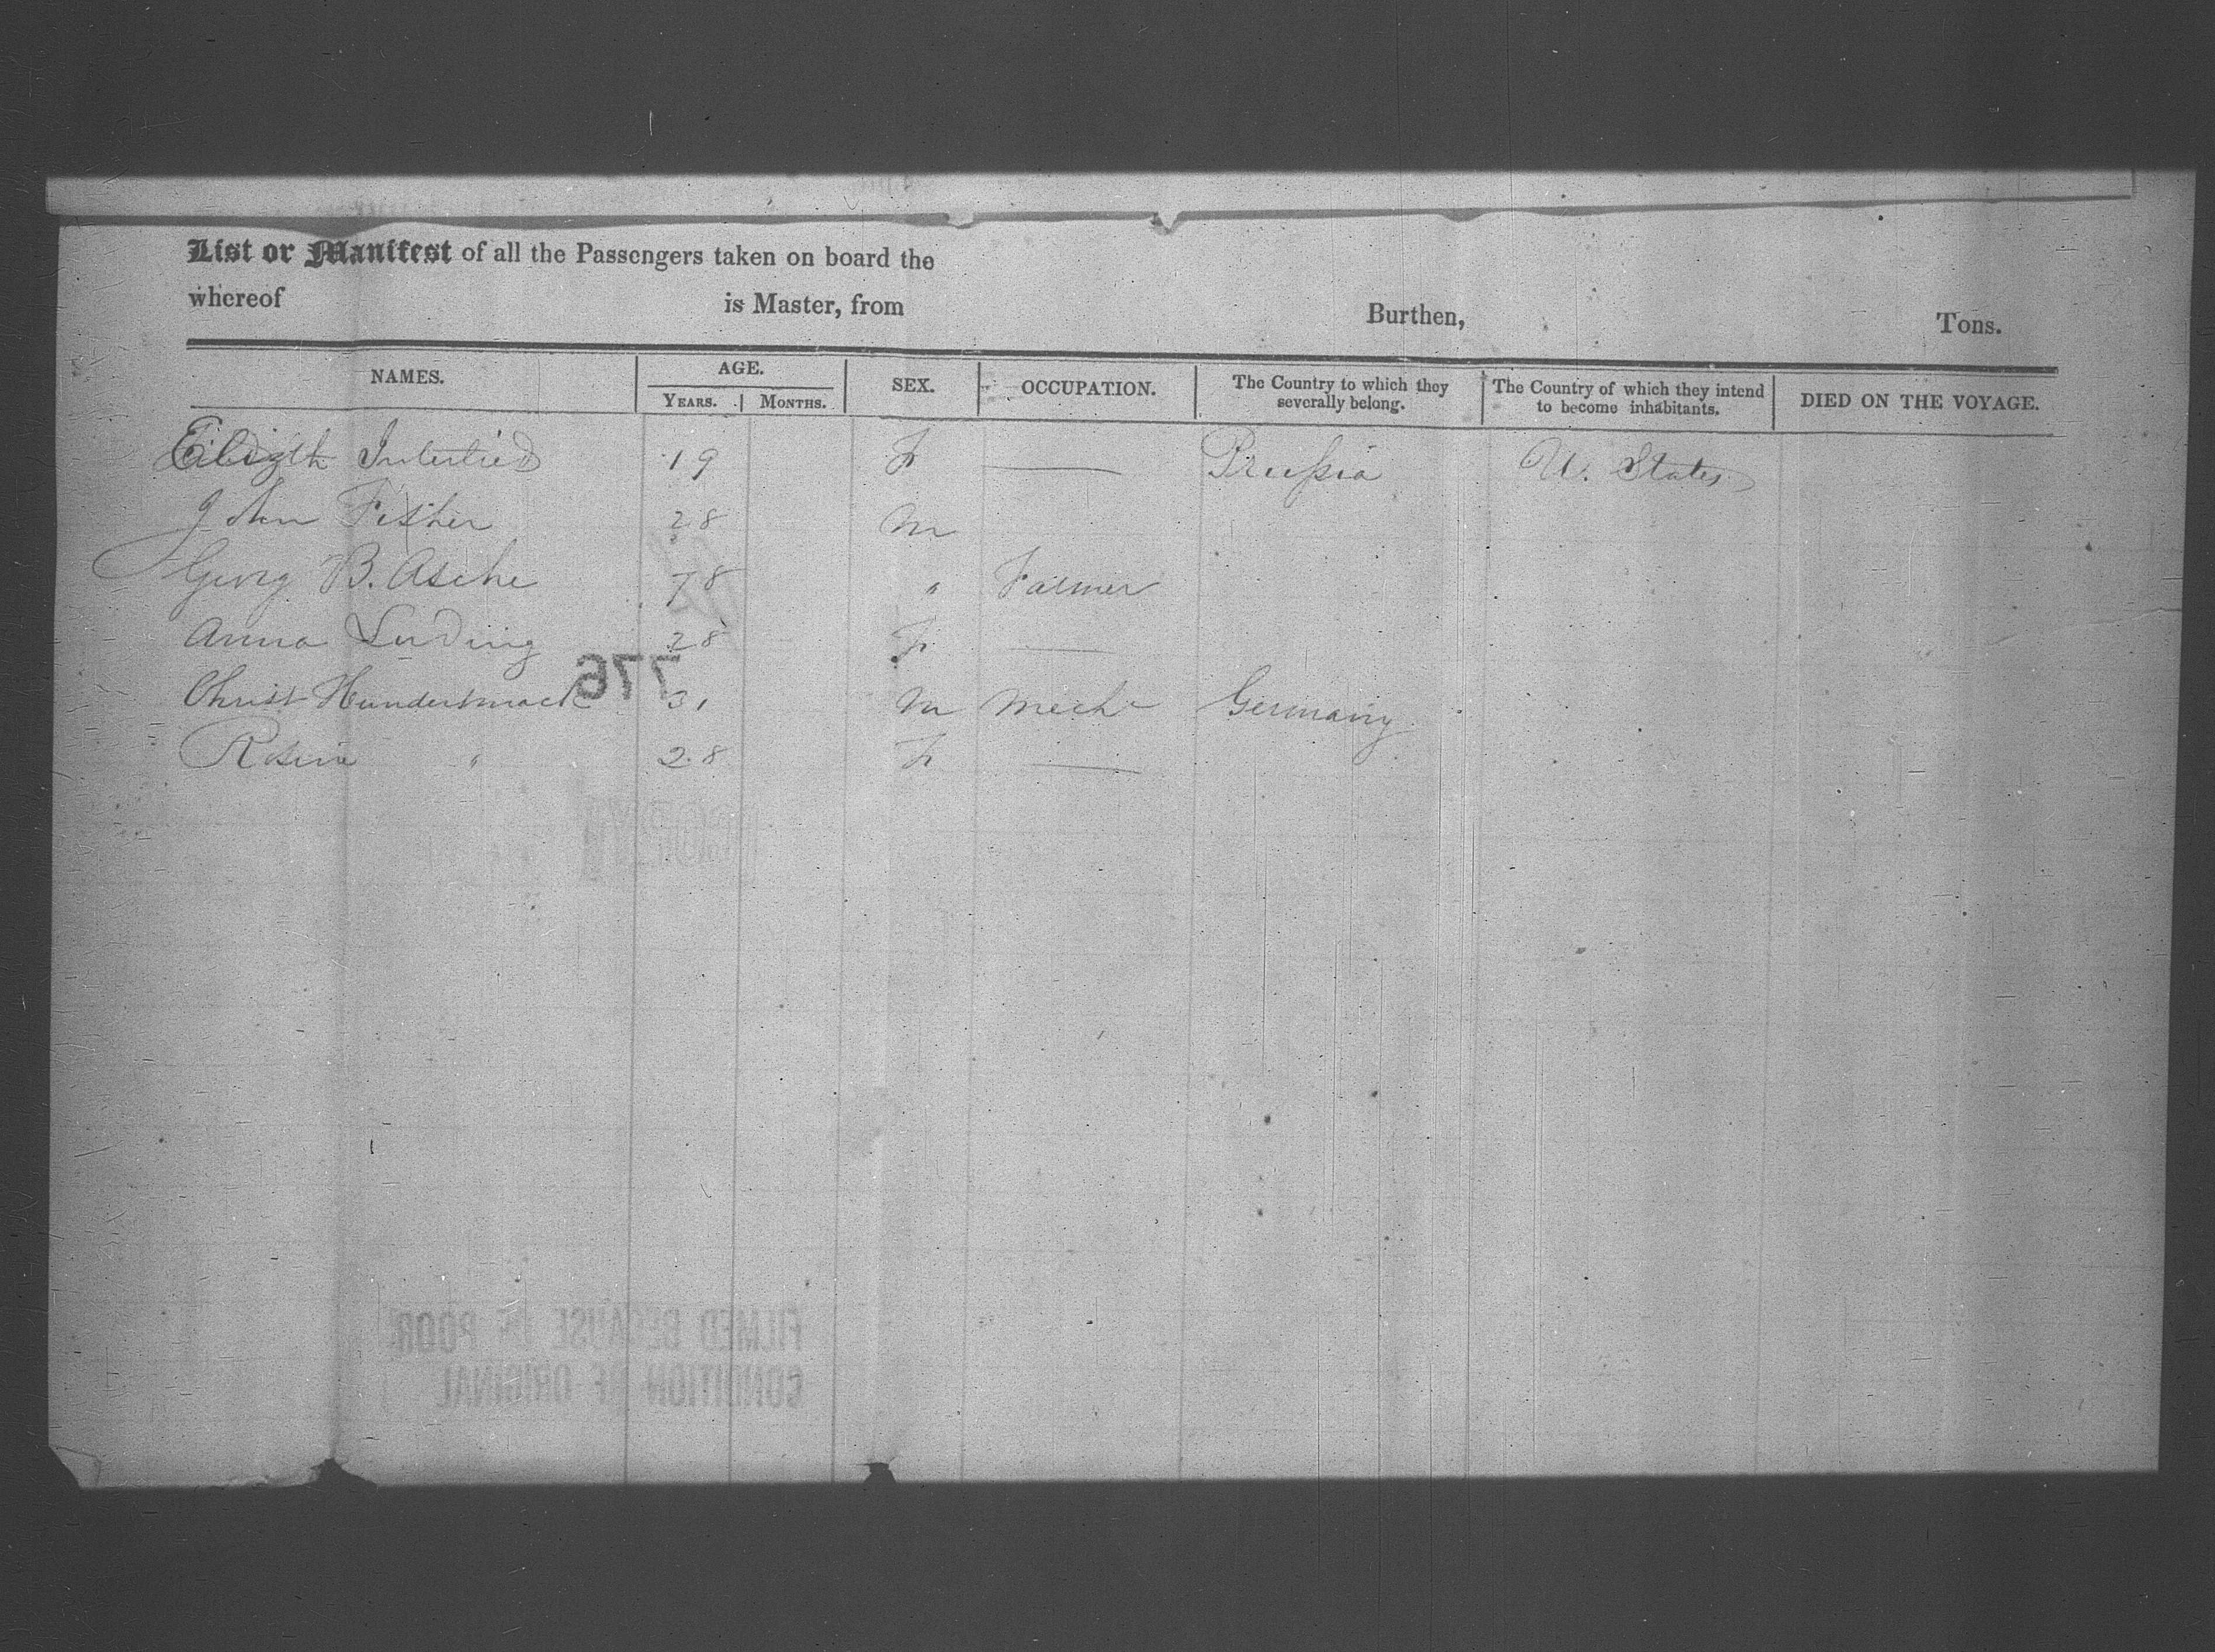 List or Manifest of all the Passengers taken on board the
whereof is Master, from Burthen, Tons.
NAMES. AGE. SEX. OCCUPATION. The Country to which they severally belong. The Country of which they intend to become inhabitants. DIED ON THE VOYAGE.
YEARS. MONTHS.
19 F — Prussia U. States
John Fisher 28 M
Georg B. Asche 78 " Farmer
Anna Luding 28 F —
Christ Hundertmack 31 M Mech Germany
Rosina " 28 F —
776
FILMED BECAUSE OF POOR
CONDITION OF ORIGINAL